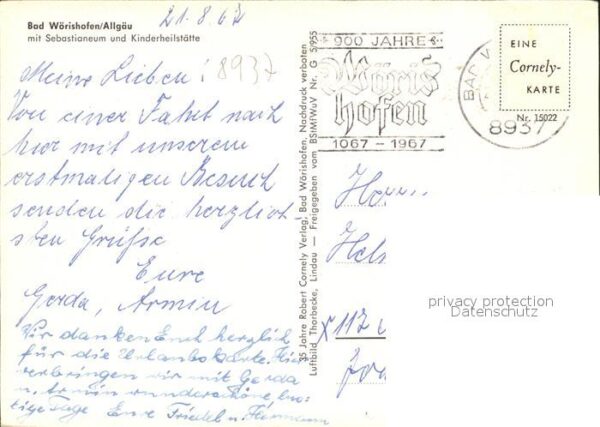 21.8.67
Bad Wörishofen/Allgäu
mit Sebastianeum und Kinderheilstätte
8937
Meine Lieben!
Von einer Fahrt nach
hier mit unserem
erstmaligen Besuch
senden die herzlich-
sten Grüße
Eure
Gerda, Armin
Wir danken Euch herzlich
für die Urlaubskarte. Hier
verbringen wir mit Gerda
u. Armin wunderschöne, lus-
tige Tage Eure Friedel u. Hermann
35 Jahre Robert Cornely Verlag, Bad Wörishofen, Nachdruck verboten
Luftbild Thorbecke, Lindau — Freigegeben vom BStMfWuV Nr. G 5/955
900 JAHRE
Wöris
hofen
1067 – 1967
BAD W
8937
EINE
Cornely-
KARTE
Nr. 15022
Herrn
Hel
X 112
privacy protection
Datenschutz